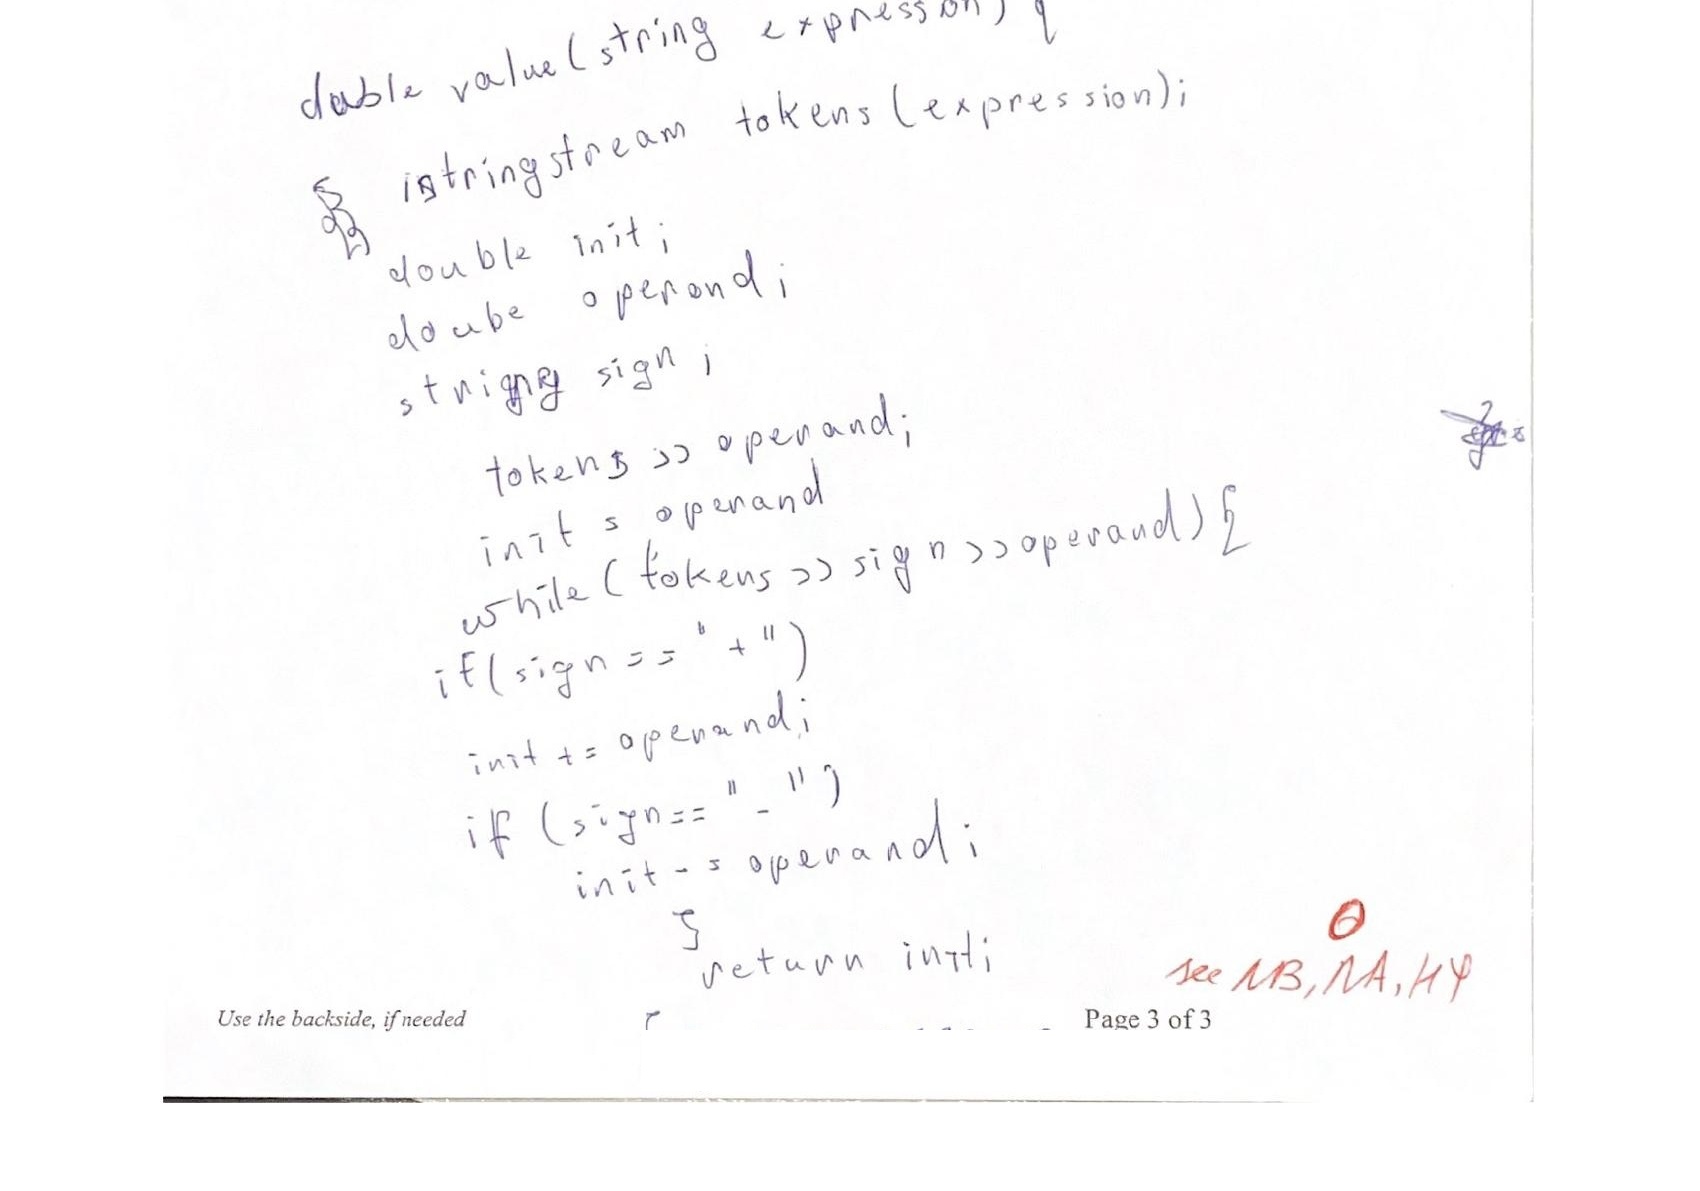 double value(string expression) {
istringstream tokens(expression);
double init;
doube operand;
string sign;
tokens >> operand;
init = operand
while(tokens >> sign >> operand) {
if(sign == "+")
init += operand;
if (sign== "-")
init -= operand;
}
return init;
see NB, NA, HY
Use the backside, if needed
Page 3 of 3